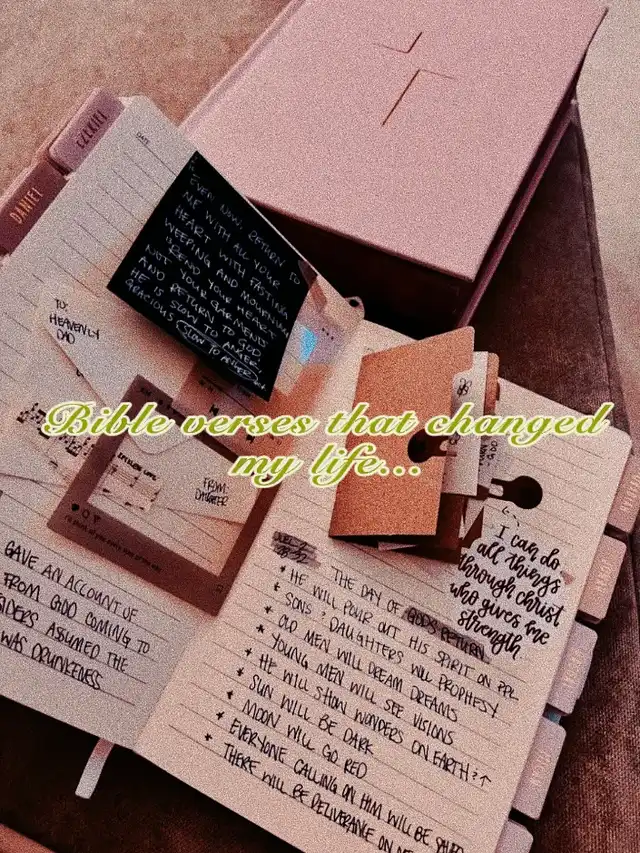 EZEKIEL
DANIEL
DATE
"EVEN NOW, RETURN TO
ME WITH ALL YOUR
HEART WITH FASTING
WEEPING AND MOURNING
"REND YOUR HEART
NOT YOUR GARMENTS
AND RETURN TO GOD
HE IS SLOW TO ANGER,
GRACIOUS (SLOW TO ANGER)
TO:
HEAVENLY
DAD
Bible verses that changed
my life...
FROM:
DAUGHTER
GAVE AN ACCOUNT OF
FROM GOD COMING TO
SIDERS ASSUMED THE
WAS DRUNKENESS
I can do
all things
through christ
who gives me
strength
THE DAY OF GODS RETURN
* HE WILL POUR OUT HIS SPIRIT ON PPL
* SONS & DAUGHTERS WILL PROPHESY
* OLD MEN WILL DREAM DREAMS
* YOUNG MEN WILL SEE VISIONS
* HE WILL SHOW WONDERS ON EARTH & ↑
* SUN WILL BE DARK
* MOON WILL GO RED
* EVERYONE CALLING ON HIM WILL BE
* THERE WILL BE DELIVERANCE ON